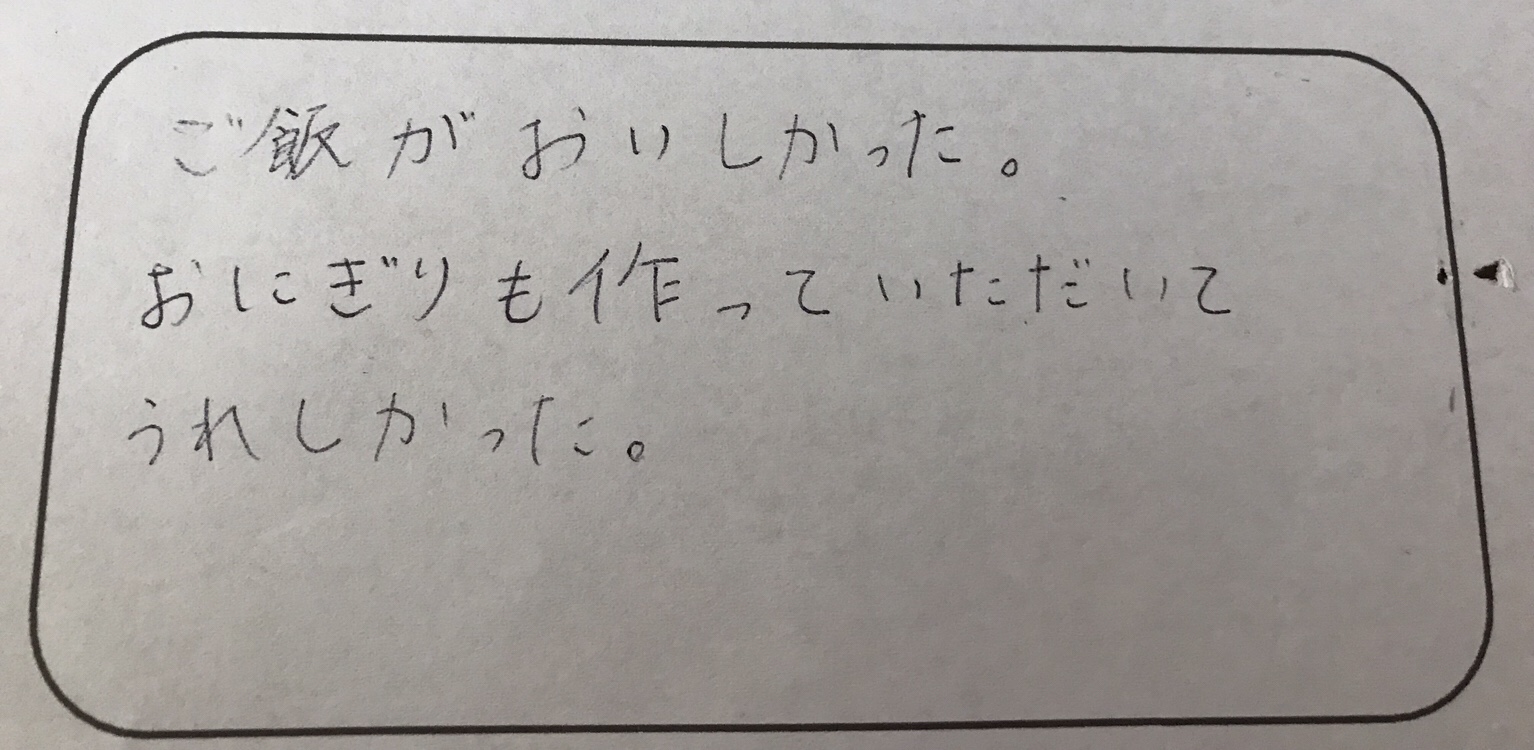 ご飯がおいしかった。
おにぎりも作っていただいて
うれしかった。